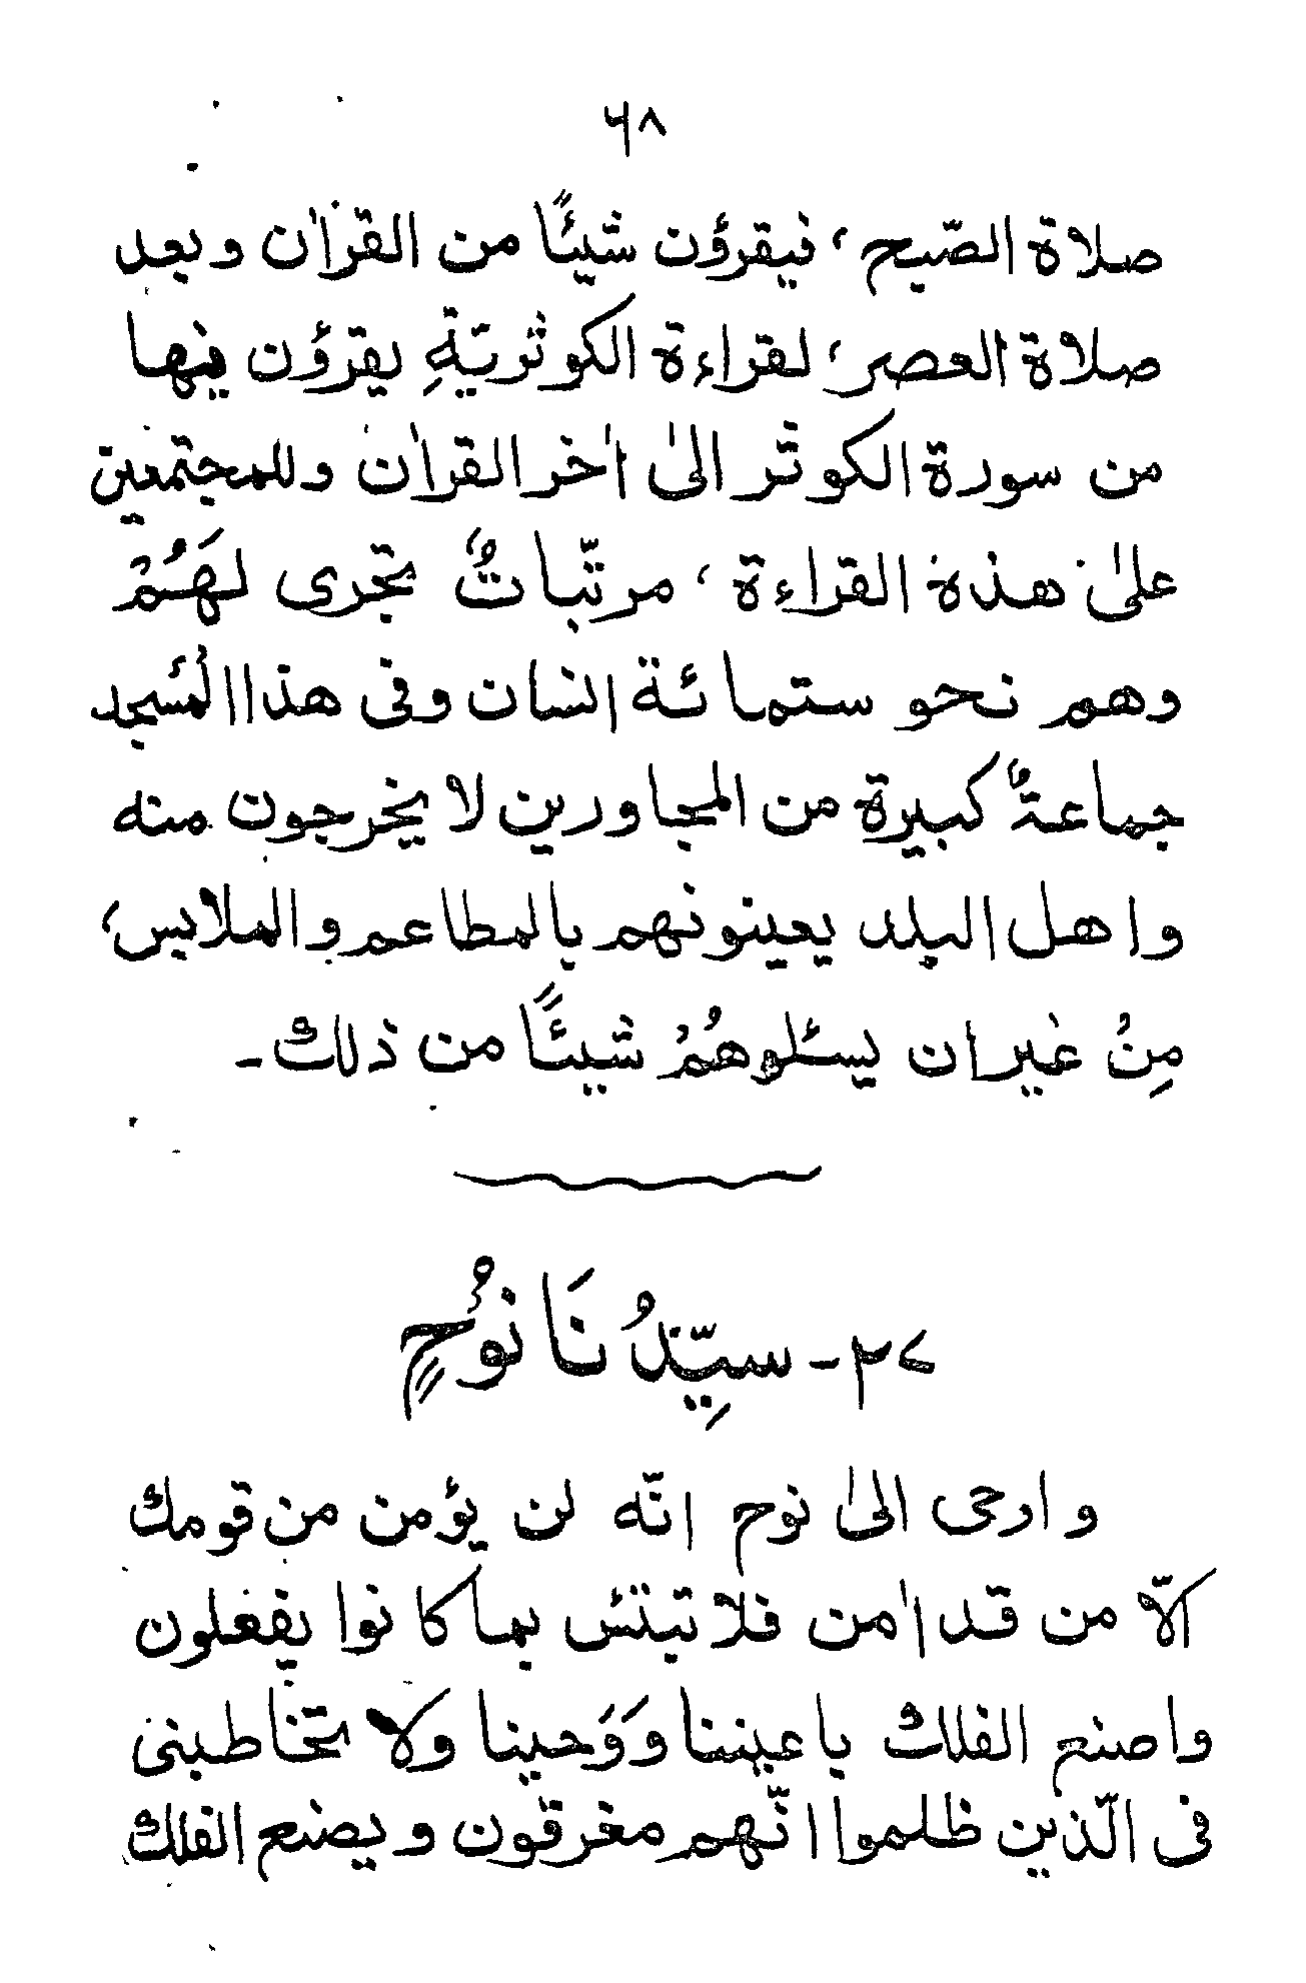 ٦٨
صلاة الصّبح، فيقرؤن شيئًا من القراٰن وبعد
صلاة العصر، لقراءة الكوثريّةِ يقرؤن فيها
من سورة الكوثر الىٰ اٰخر القراٰن وللمجتمعين
علىٰ هذه القراءة، مرتّباتٌ تجرى لهَُمْ
وهم نحو ستمائة انسان وفى هذا المسجد
جماعةٌ كبيرة من المجاورين لا يخرجون منه
واهل البلد يعينونهم بالمطاعم والملابس،
مِنْ غير ان يسئلوهُمْ شيئًا من ذلك -
٢٧ - سيِّدُنَا نوْحٍ
واوحى الىٰ نوح انّه لن يؤمن من قومك
الّا من قد اٰمن فلا تبتئس بما كانوا يفعلون
واصنع الفلك باعيننا وَوَحينا ولا تخاطبنى
فى الّذين ظلموا انّهم مغرقون ويصنع الفلك